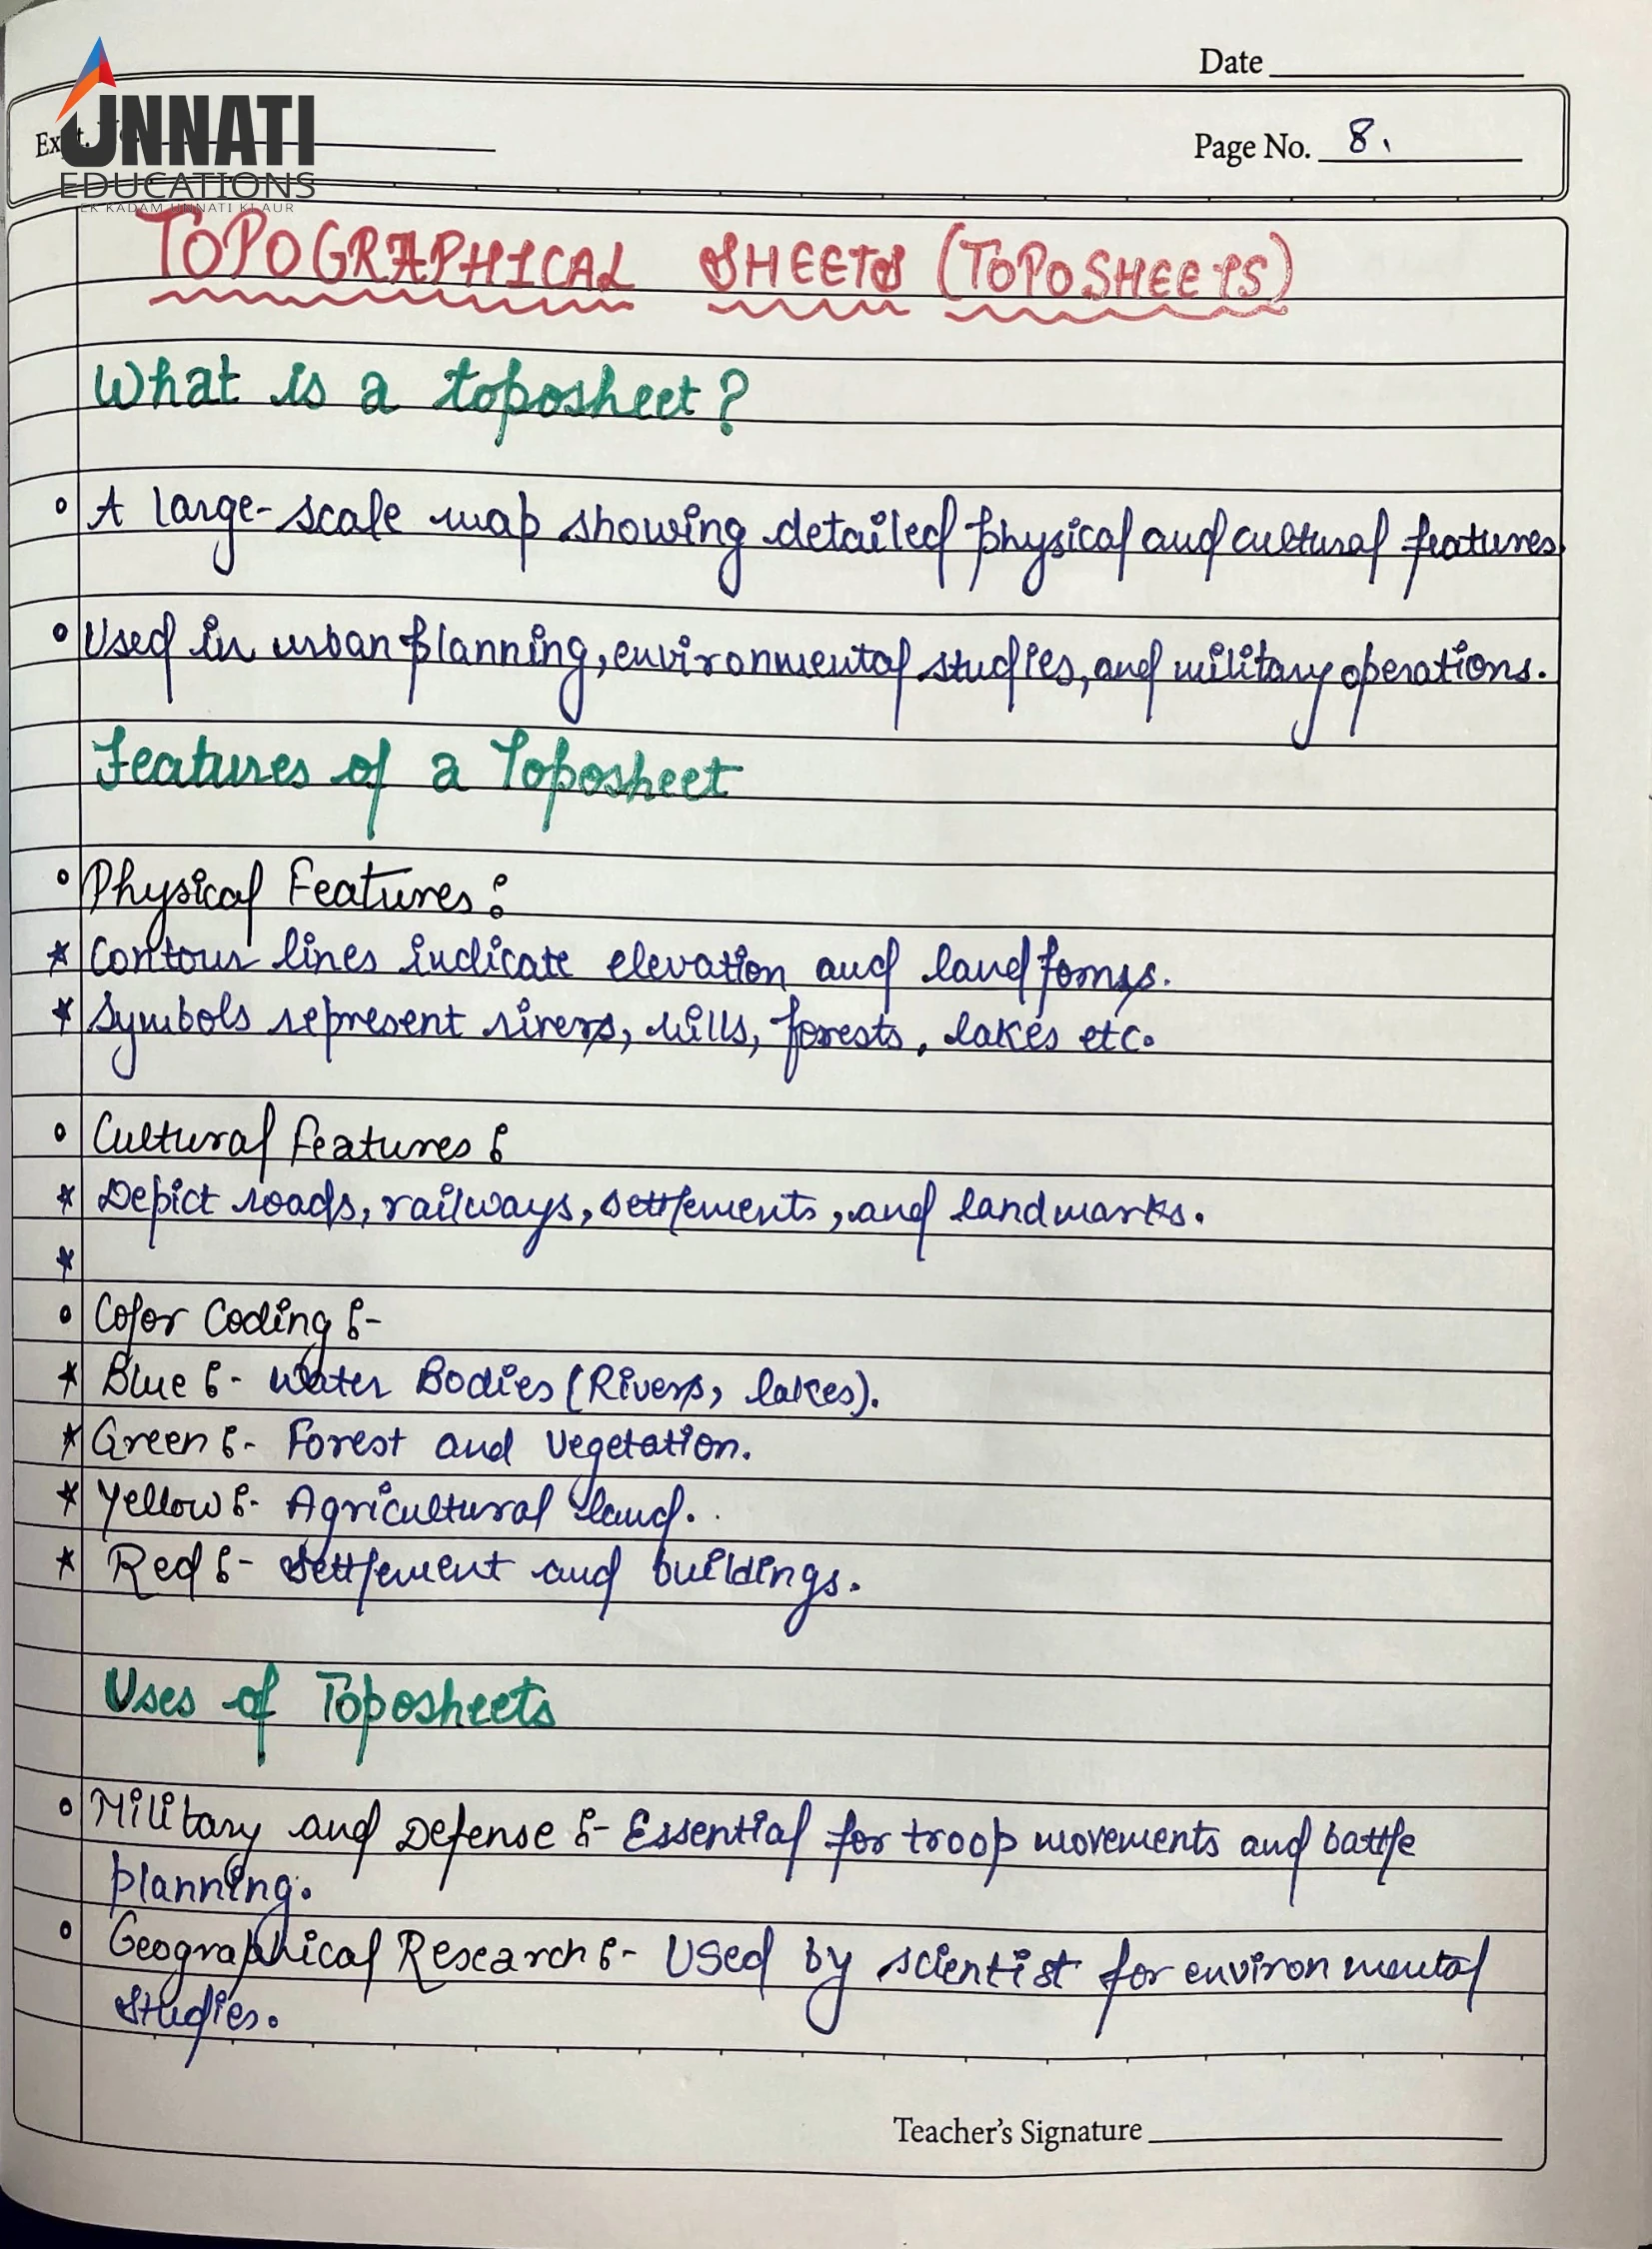 UNNATI
EDUCATIONS
EK KADAM UNNATI KI AUR
Date
Page No. 8.
TOPOGRAPHICAL SHEETS (TOPOSHEETS)
What is a toposheet?
° A large-scale map showing detailed physical and cultural features.
° Used in urban planning, environmental studies, and military operations.
Features of a Toposheet
° Physical Features:
* Contour lines indicate elevation and landforms.
* Symbols represent rivers, hills, forests, lakes etc.
° Cultural features:
* Depict roads, railways, settlements, and landmarks.
*
° Color Coding:-
* Blue:- Water Bodies (Rivers, lakes).
* Green:- Forest and vegetation.
* Yellow:- Agricultural land.
* Red:- Settlement and buildings.
Uses of Toposheets
° Military and Defense:- Essential for troop movements and battle
planning.
° Geographical Research:- Used by scientist for environmental
studies.
Teacher's Signature